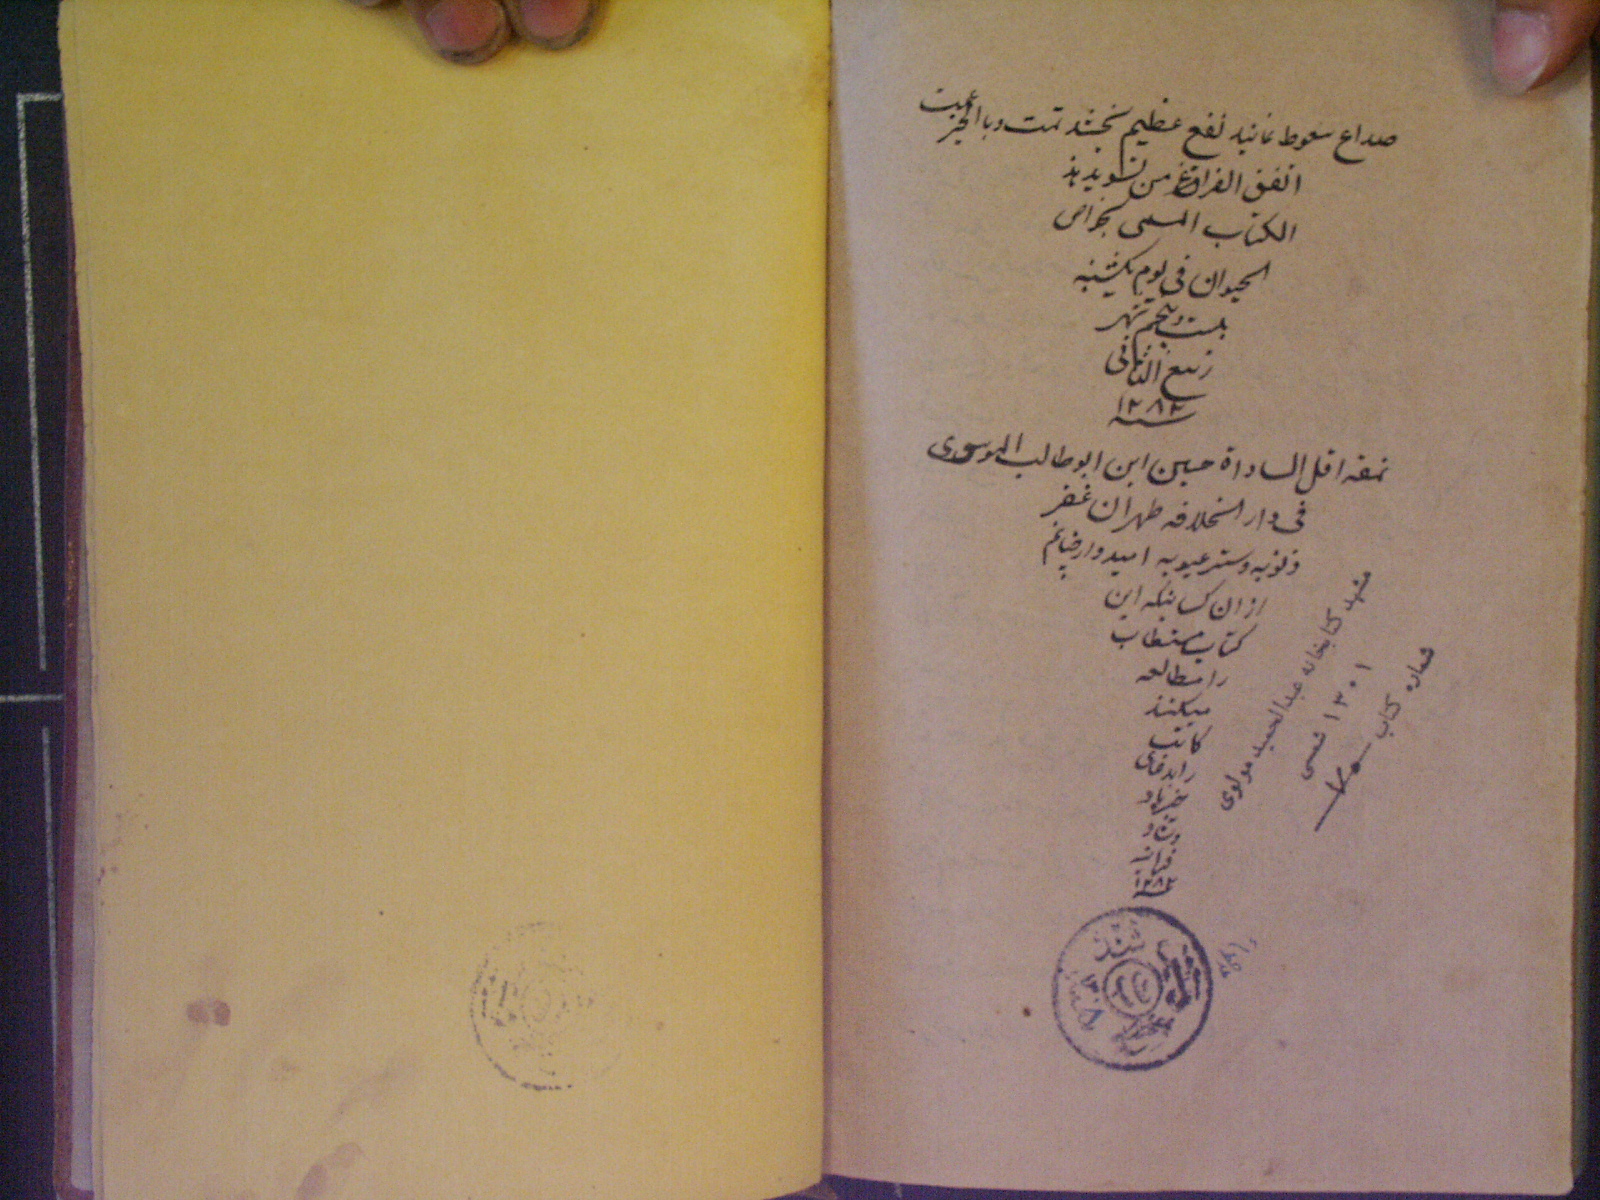 صداع سعوط نمایند نفع عظیم بخشد تمت و بالخیر عمت
اتفق الفراغ من تسوید هذ
الکتاب المسمی بخواص
الحیوان فی یوم یکشنبه
بیست و پنجم شهر
ربیع الثانی
سنه ۱۲۸۲
نمقه اقل الساداة حسین ابن ابوطالب الموسوی
فی دار الخلافه طهران غفر
ذنوبه و ستر عیوبه امیدوار چنانم
از ان کسانیکه این
کتاب مستطاب
را مطالعه
میکنند
کاتب
را بدعای
خیر یاد
۱۲۸۲
مشهد کتابخانه عبدالحمید مولوی
۱۳۰۱ شمسی
شماره کتاب
شد